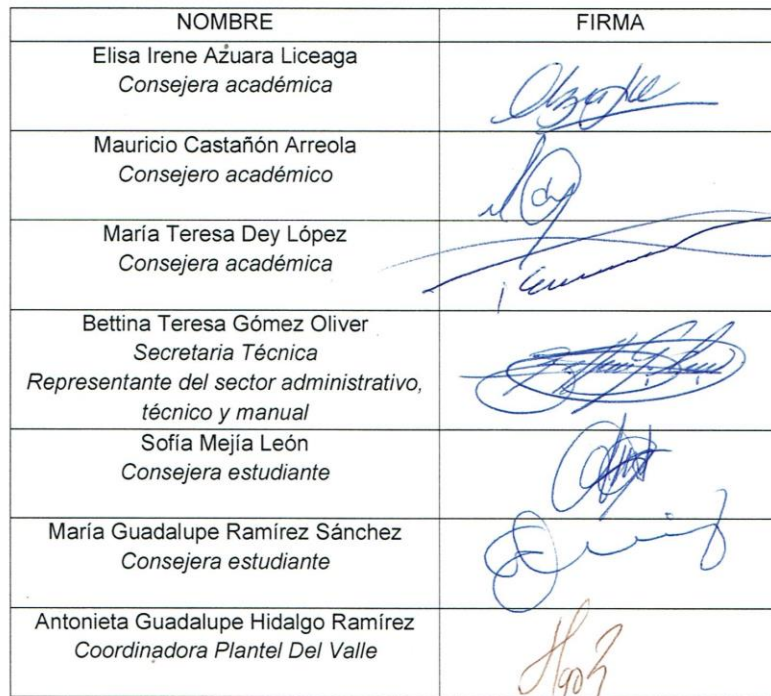 NOMBRE FIRMA
Elisa Irene Azuara Liceaga
Consejera académica
Mauricio Castañón Arreola
Consejero académico
María Teresa Dey López
Consejera académica
Bettina Teresa Gómez Oliver
Secretaria Técnica
Representante del sector administrativo,
técnico y manual
Sofía Mejía León
Consejera estudiante
María Guadalupe Ramírez Sánchez
Consejera estudiante
Antonieta Guadalupe Hidalgo Ramírez
Coordinadora Plantel Del Valle